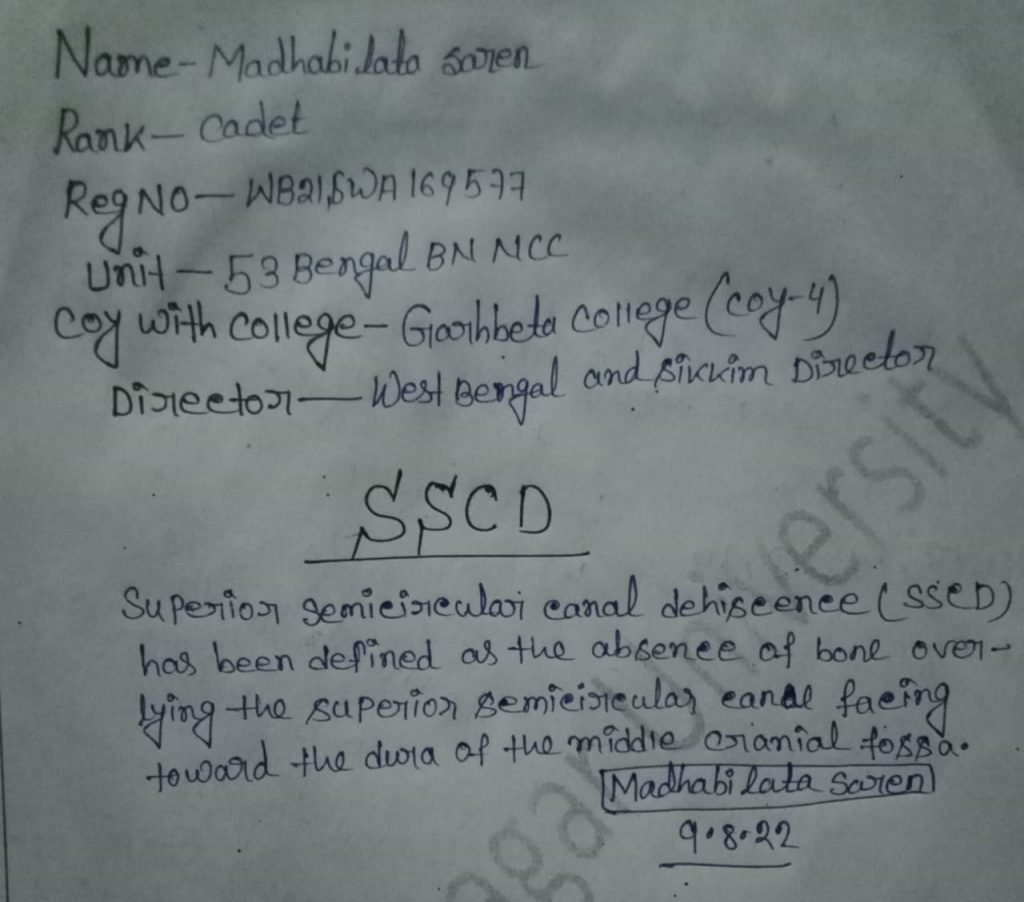 Name- Madhabi lata saren
Rank- Cadet
Reg NO- WB21SWA169577
Unit - 53 Bengal BN NCC
Coy with college- Garhbeta college (coy-4)
Director- West Bengal and Sikkim Director
SSCD
Superior semicircular canal dehiscence (SSCD)
has been defined as the absence of bone over-
lying the superior semicircular canal facing
toward the dura of the middle cranial fossa.
Madhabi lata Saren
9.8.22
University